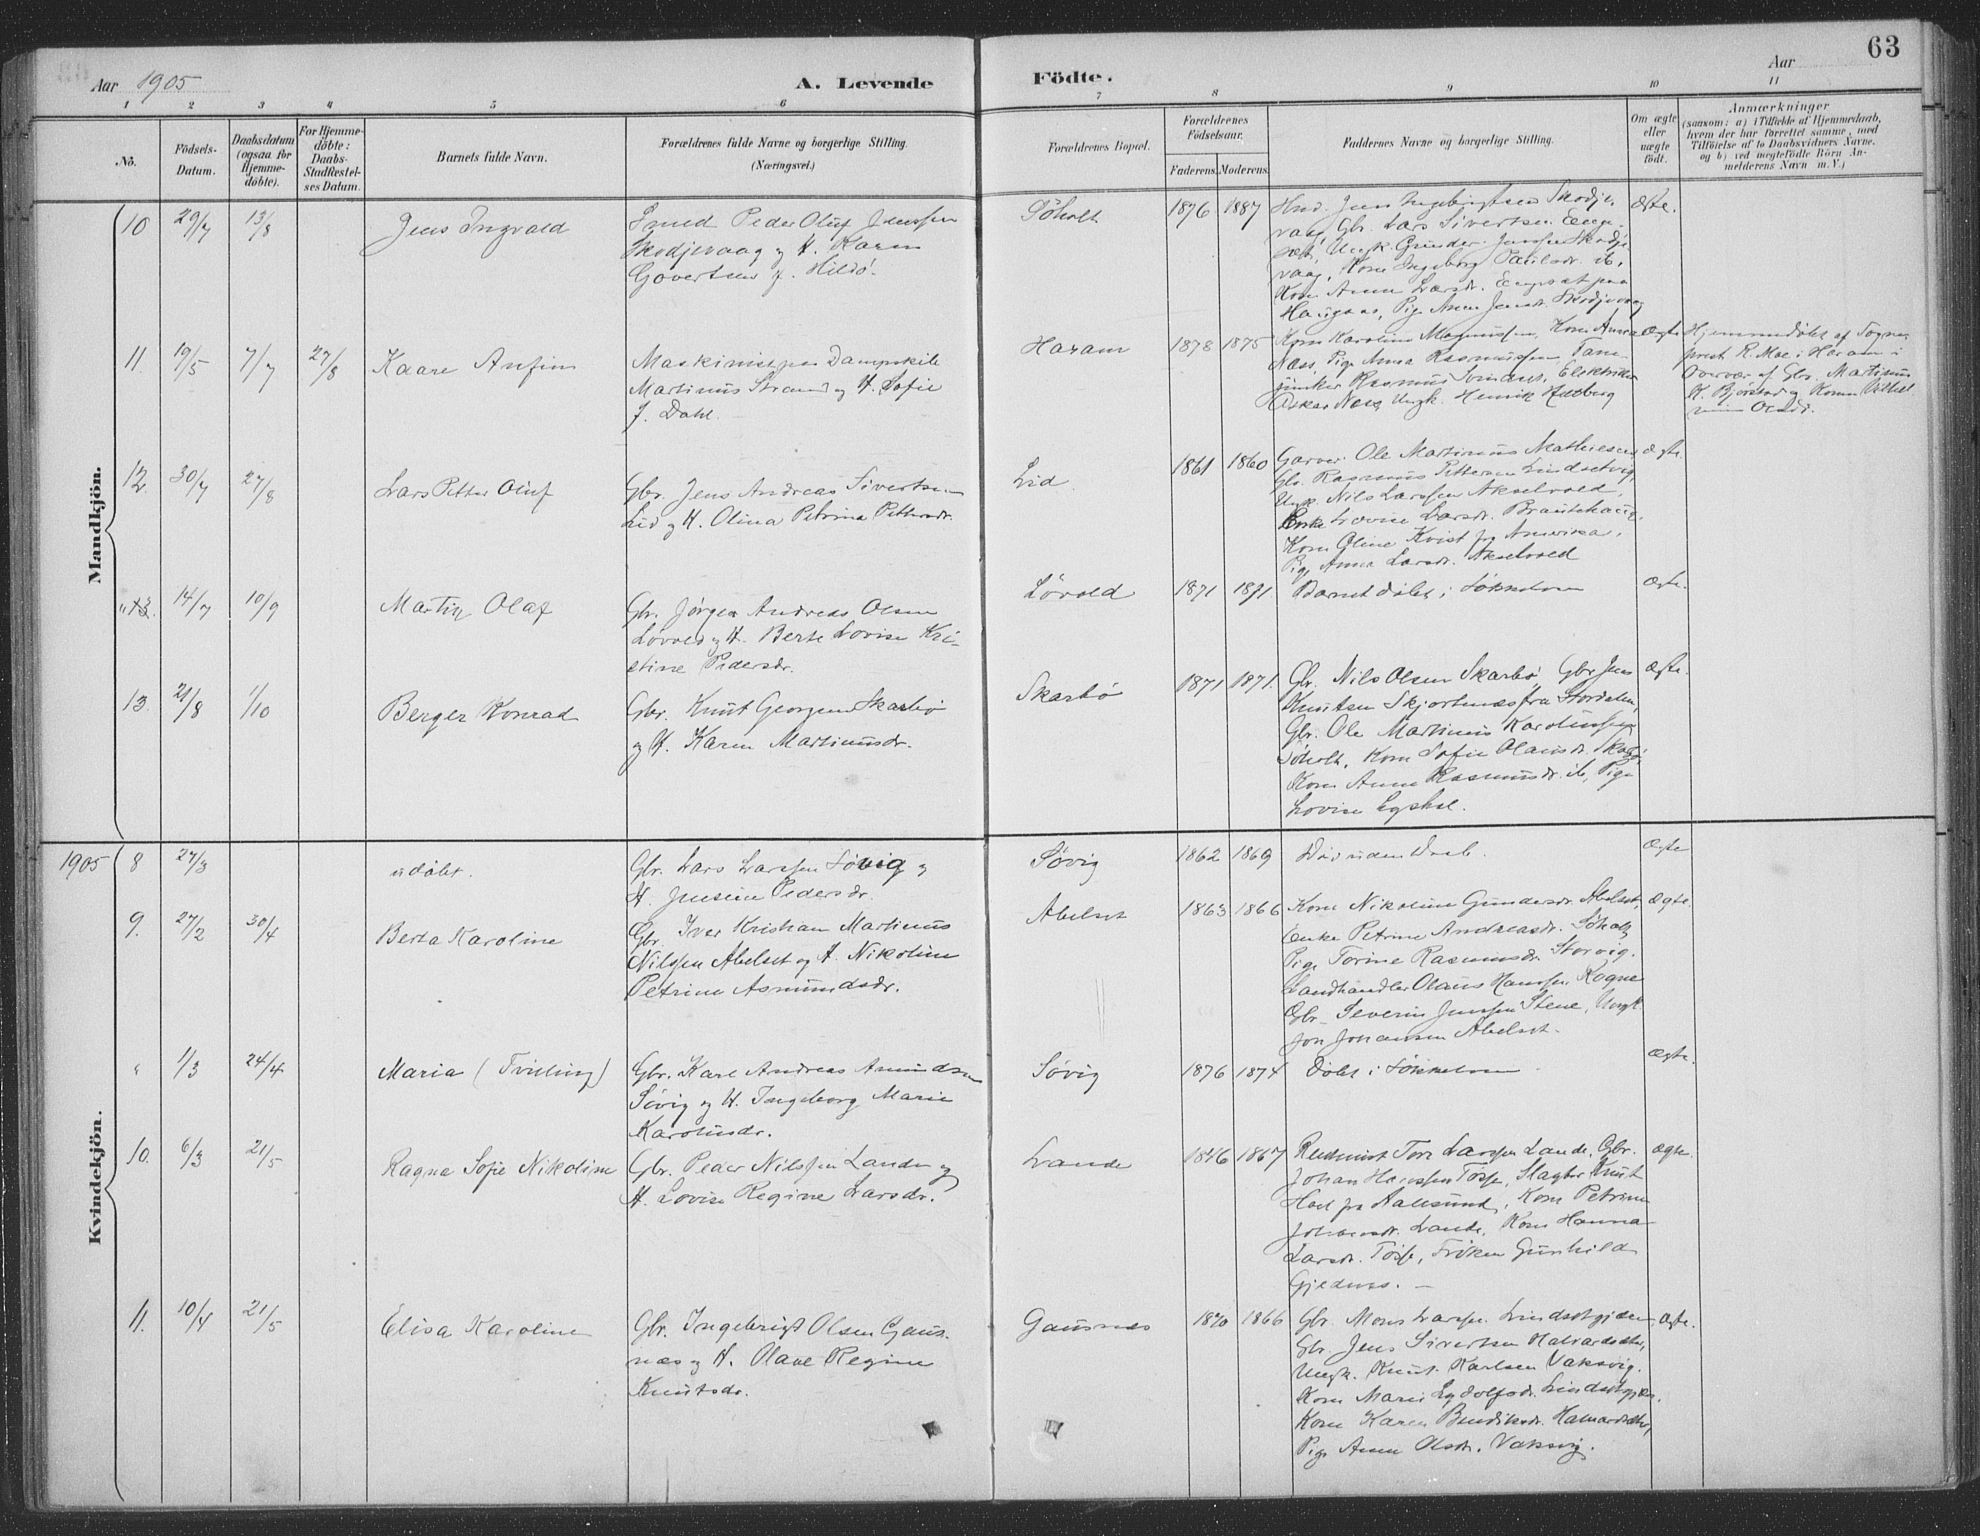 63
Aar 1905
A. Levende
Födte.
Aar
1 2 3 4 5 6 7 8 9 10 11
No.
Födsels-
Datum.
Daabsdatum
(ogsaa for
Hjemme-
döbte).
For Hjemme-
döbte:
Daabs-
Stadfæstel-
ses Datum.
Barnets fulde Navn.
Forældrenes fulde Navne og borgerlige Stilling.
(Næringsvei.)
Forældrenes Bopæl.
Forældrenes
Födselsaar.
Faderens. Moderens.
Faddernes Navne og borgerlige Stilling.
Om ægte
eller
uægte
födt.
Anmærkninger
(saasom: a) i Tilfælde af Hjemmedaab,
hvem der har forrettet samme, med
Tilföielse af to Daabsvidners Navne,
og b) ved uægtefödte Börn An-
melderens Navn m. V.)
Mandkjön.
10 29/7 13/8
Jens Ingvald
Smed Peder Oluf Jenssen
Skodjevaag og H. Karen
Govertsen f. Hildö.
Söholt
1876 1887
Jens Ingebrigtsen Skodje-
vaag, Gbr. Lars Sivertsen Emp-
set, Ungk. Gunder Jenssen Skodje
vaag, Kone Ingeborg Paulsdr. ib.,
Kone Anne Larsdr. Empset paa
Haugaas, Pige Anne Jensdr. Skodjevaag
Ægte.
11. 19/5 7/7 27/8
Kaare Anfin
Maskinist paa Dampskib
Martinus Strand og H. Sofie
f. Dahl.
Haram
1878 1875
Kone Karoline Magnussen, Kone Anna
Næss, Pige Anna Rasmussen, Fane-
junker Rasmus Svindset, Elektriker
Oskar Næss, Ungk. Henrik Hedberg
Ægte
Hjemmedöbt af Sogne-
prest R. Moe i Haram i
Overvær af Gbr. Martinus
K. Bjørstad og Konen Vilhel
mine Olsdr.
12. 30/7 27/8
Lars Petter Oluf
Gbr. Jens Andreas Sivertsen
Lid og H. Olina Petrina Pettersdr.
Lid
1861 1860
Garver Ole Martinus Mathiesen
Gbr. Rasmus Pettersen Lindsetvig,
Ungk. Nils Larssen Akselvold,
Enke Lovise Larsdr. Brautehaug,
Kone Oline Kvist fra Amerika,
Pige Anna Larsdr. Akselvold
Ægte.
" 14/7 10/9
Martin Olaf
Gbr. Jørgen Andreas Olsen
Løvold og H. Berte Lovise Kri-
stine Pedersdr.
Løvold
1871 1871
Barnet döbt i Søkkelven
Ægte.
13 21/8 1/10
Berger Konrad
Gbr. Knut Georgsen Skarbø
og H. Karen Martinusdr.
Skarbø
1871 1871.
Gbr. Nils Olsen Skarbø, Gbr Jens
Knutsen Skjortnes fra Stordalen
Gbr. Ole Martinus Karolussen
Söholt, Kone Sofie Olausdr. Skarbø
Kone Anne Rasmusdr. ib, Pige
Lovise
Ægte.
Kvindekjön.
1905
8 27/3
udöbt.
Gbr. Lars Larssen Søvig og
H. Jensine Pedersdr.
Søvig
1862 1869
Död uden Daab.
Ægte
9. 27/2 30/4
Berta Karoline
Gbr. Iver Kristian Martinus
Nilssen Abelset og H. Nikoline
Petrine Asmundsdr.
Abelset
1863 1866
Kone Nikoline Gundersdr. Abelset,
Enke Petrine Andreasdr. Söholt
Pige Torine Rasmusdr. Storvig.
Landhandler Olaus Hanssen Rogne
Gbr. Severin Jenssen Stene, Ungk.
Jon Johansen Abelset.
Ægte
" 1/3 24/4
Maria (Tvilling)
Gbr. Karl Andreas Amundsen
Søvig og H. Ingeborg Marie
Karolusdr.
Søvig
1876 1874
Döbt i Søkkelven
Ægte.
10. 6/3 21/5
Ragna Sofie Nikoline
Gbr. Peder Nilssen Lande og
H. Lovise Regine Larsdr.
Lande
1846 1867
Tore Larssen Lande, Gbr.
Johan Hanssen Tösse, Slagter Knut
Hoel fra Aalesund, Kone Petrine
Johansdr. Lande, Kone Hanna
Larsdr. Tösse, Fröken Gunhild
Gjednes. —
Ægte.
11. 10/4 21/5
Elisa Karoline
Gbr. Ingebrigt Olsen Gaus-
næs og H. Olave Regine
Knutsdr.
Gausnæs
1870 1866
Gbr. Mons Larssen Lindsetgjden
Gbr. Jens Sivertsen Halvardsæter,
Ungk. Knut Karlsen Vaksvig.
Kone Marie Eydolfsdr. Lindsetgjden
Kone Karen Bendiksdr. Halvardsæter,
Pige Anne Olsdr. Vaksvig.
Ægte.